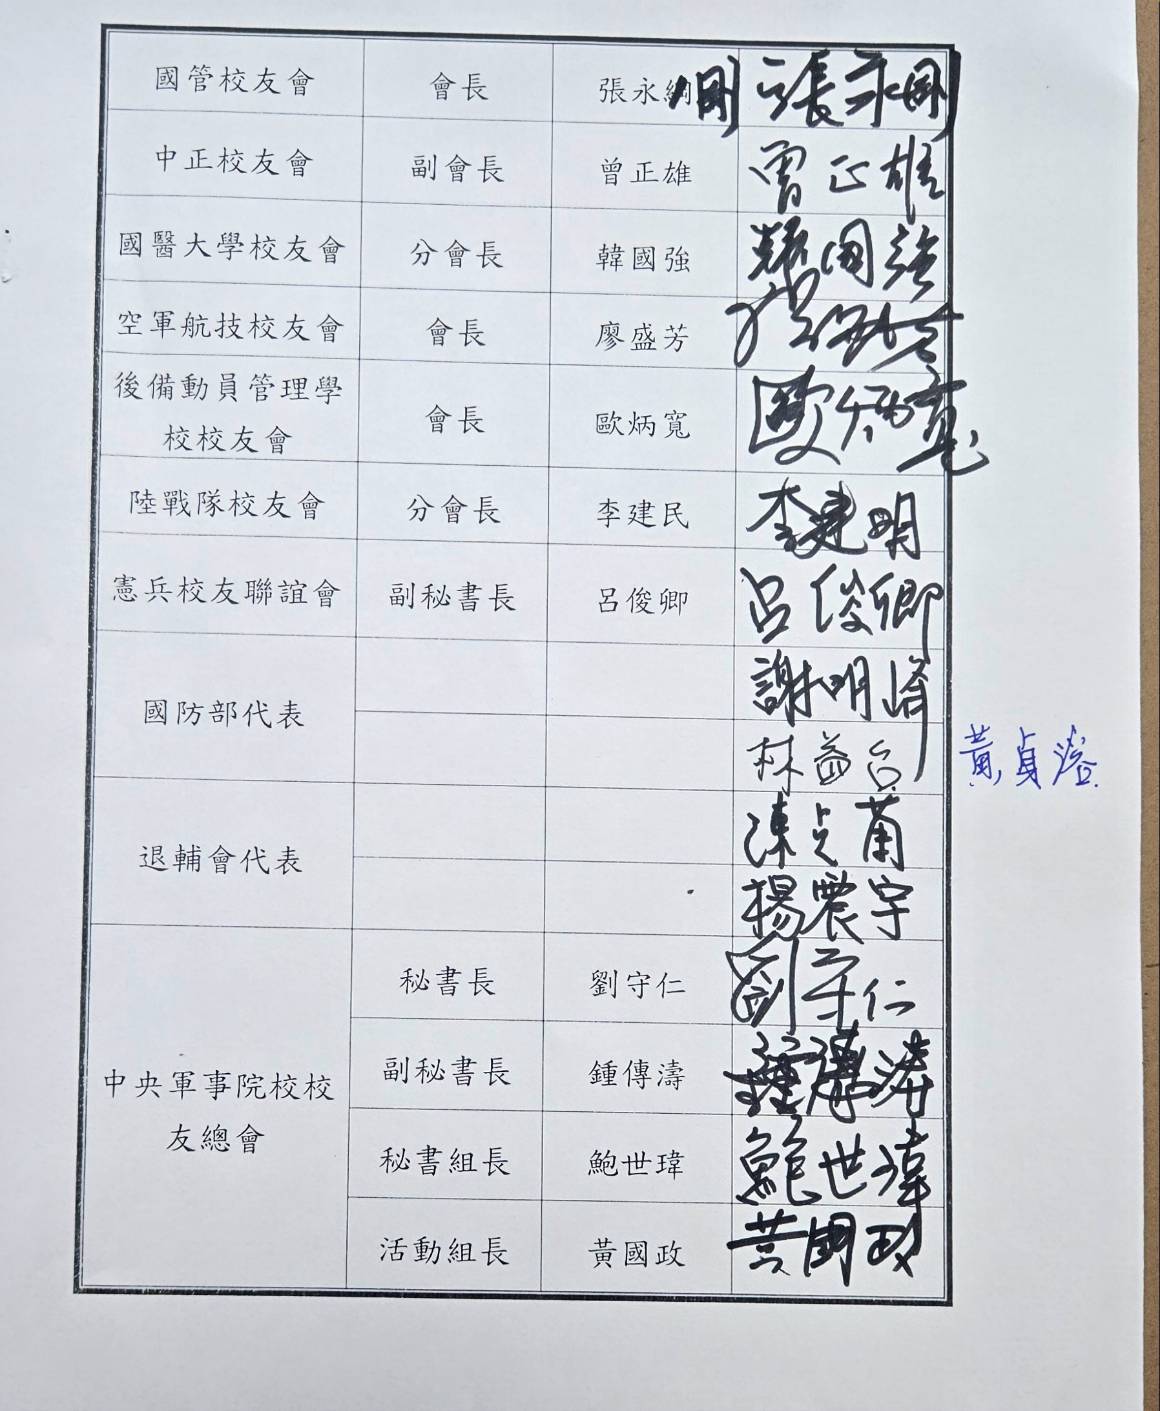 國管校友會 會長 張永綱 剛 張永剛
中正校友會 副會長 曾正雄 曾正雄
國醫大學校友會 分會長 韓國強 韓國強
空軍航技校友會 會長 廖盛芳
後備動員管理學
校校友會 會長 歐炳寬 歐炳寬
陸戰隊校友會 分會長 李建民 李建明
憲兵校友聯誼會 副秘書長 呂俊卿 呂俊卿
國防部代表 謝明
林益台 黃貞
退輔會代表 陳
楊震宇
中央軍事院校校
友總會
秘書長 劉守仁 劉守仁
副秘書長 鍾傳濤 鍾傳濤
秘書組長 鮑世瑋 鮑世瑋
活動組長 黃國政 黃國政